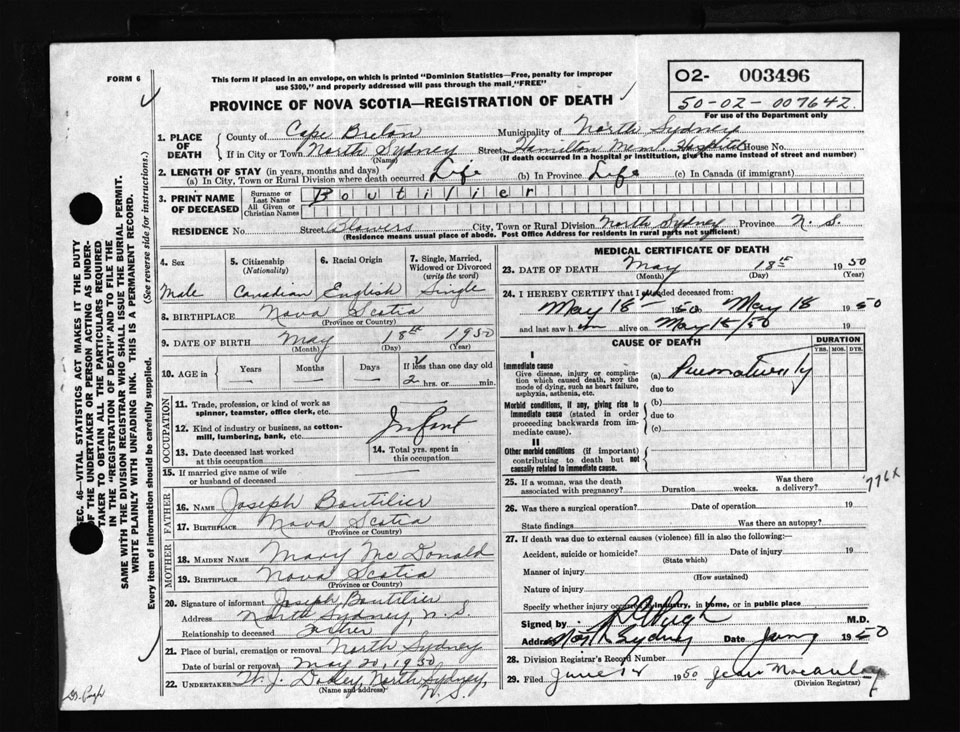 FORM 6
This form if placed in an envelope, on which is printed "Dominion Statistics—Free, penalty for improper
use $300," and properly addressed will pass through the mail, "FREE"
PROVINCE OF NOVA SCOTIA—REGISTRATION OF DEATH
O2- 003496
50-02-007642
For use of the Department only
SEC. 46—VITAL STATISTICS ACT MAKES IT THE DUTY
OF THE UNDERTAKER OR PERSON ACTING AS UNDER-
TAKER TO OBTAIN ALL THE PARTICULARS REQUIRED
IN THE "REGISTRATION OF DEATH" AND TO FILE THE
SAME WITH THE DIVISION REGISTRAR WHO SHALL ISSUE THE BURIAL PERMIT.
WRITE PLAINLY WITH UNFADING INK. THIS IS A PERMANENT RECORD.
Every item of information should be carefully supplied. (See reverse side for instructions.)
1. PLACE OF DEATH County of Cape Breton Municipality of North Sydney
If in City or Town North Sydney Street Hamilton Mem. Hospital House No.
(Name) (If death occurred in a hospital or institution, give the name instead of street and number)
2. LENGTH OF STAY (in years, months and days)
(a) In City, Town or Rural Division where death occurred Life (b) In Province Life (c) In Canada (if immigrant)
3. PRINT NAME OF DECEASED Surname or Last Name Boutilier
All Given or Christian Names
RESIDENCE No. Street Blowers City, Town or Rural Division North Sydney Province N. S.
(Residence means usual place of abode. Post Office Address for residents in rural parts not sufficient)
4. Sex 5. Citizenship (Nationality) 6. Racial Origin 7. Single, Married, Widowed or Divorced (write the word)
Male Canadian English Single
8. BIRTHPLACE Nova Scotia
(Province or Country)
9. DATE OF BIRTH May 18th 1950
(Month) (Day) (Year)
10. AGE in Years Months Days If less than one day old
2 hrs. or min.
OCCUPATION
11. Trade, profession, or kind of work as spinner, teamster, office clerk, etc.
12. Kind of industry or business, as cotton-mill, lumbering, bank, etc. Infant
13. Date deceased last worked at this occupation 14. Total yrs. spent in this occupation
15. If married give name of wife or husband of deceased
FATHER
16. NAME Joseph Boutilier
17. BIRTHPLACE Nova Scotia
(Province or Country)
MOTHER
18. MAIDEN NAME Mary McDonald
19. BIRTHPLACE Nova Scotia
(Province or Country)
20. Signature of informant Joseph Boutilier
Address North Sydney, N. S.
Relationship to deceased Father
21. Place of burial, cremation or removal North Sydney
Date of burial or removal May 20, 1950
22. UNDERTAKER W. J. Dooley, North Sydney, N. S.
(Name and address)
MEDICAL CERTIFICATE OF DEATH
23. DATE OF DEATH May 18th 1950
(Month) (Day) (Year)
24. I HEREBY CERTIFY that I attended deceased from:
May 18th 1950 to May 18 1950
and last saw him alive on May 18/50 19
CAUSE OF DEATH DURATION
YRS. MOS. DYS.
I
Immediate cause (a) Prematurity
Give disease, injury or complication which caused death, NOT the mode of dying, such as heart failure, asphyxia, asthenia, etc.
due to
Morbid conditions, if any, giving rise to immediate cause (stated in order proceeding backwards from immediate cause). (b)
due to
(c)
II
Other morbid conditions (if important) contributing to death but not causally related to immediate cause.
25. If a woman, was the death associated with pregnancy? Duration weeks. Was there a delivery?
776X
26. Was there a surgical operation? Date of operation 19
State findings Was there an autopsy?
27. If death was due to external causes (violence) fill in also the following:—
Accident, suicide or homicide? Date of injury 19
(State which)
Manner of injury
(How sustained)
Nature of injury
Specify whether injury occurred in industry, in home, or in public place
Signed by Pugh M.D.
Address North Sydney Date June 1950
28. Division Registrar's Record Number
29. Filed June 12 1950 Jean
(Division Registrar)
Dr. Pugh